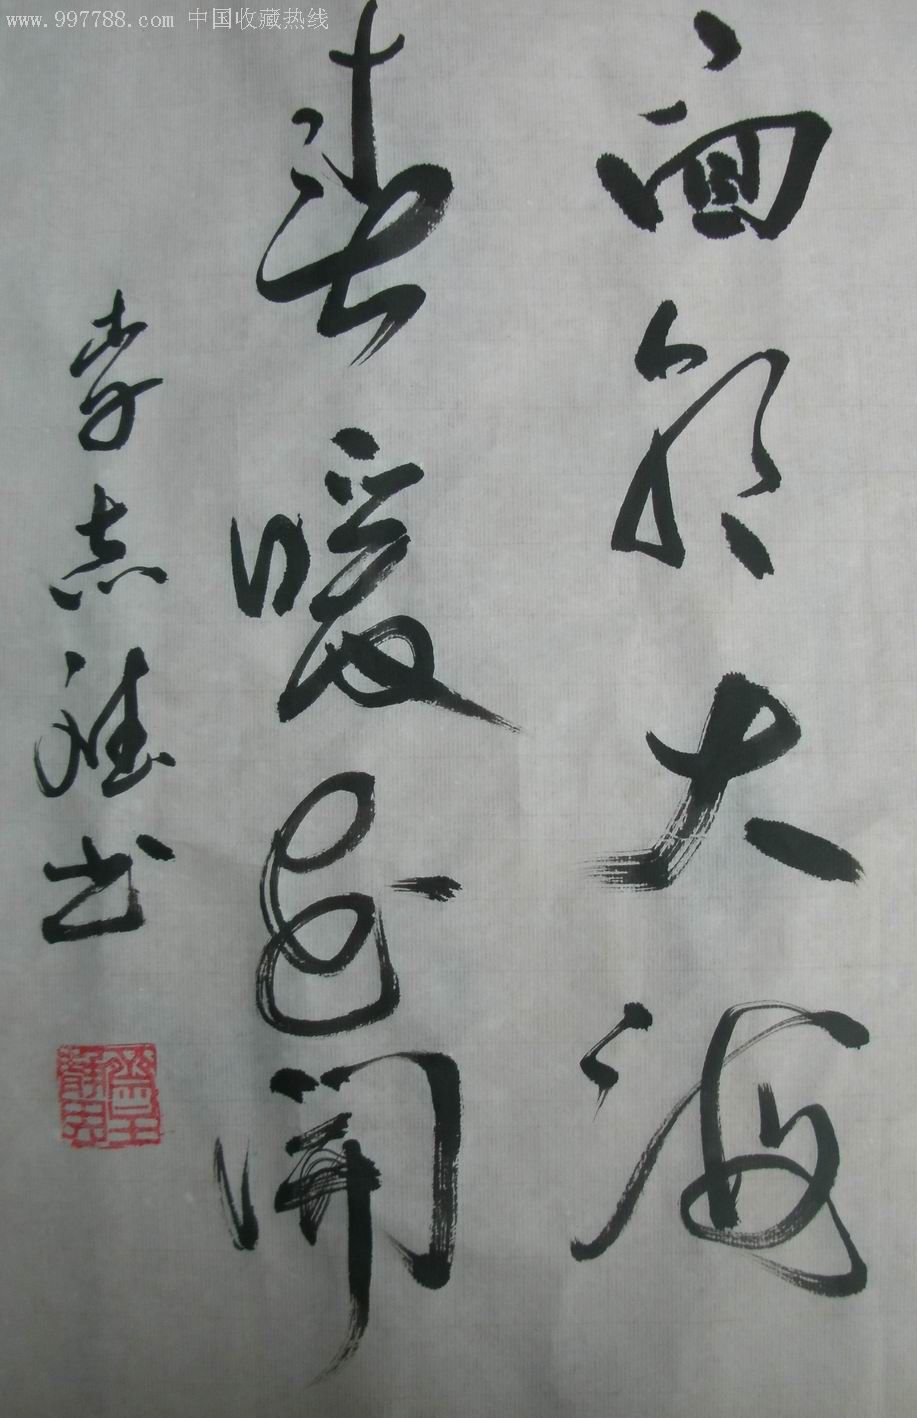 www.997788.com 中国收藏热线
面朝大海
春暖花開
李志书